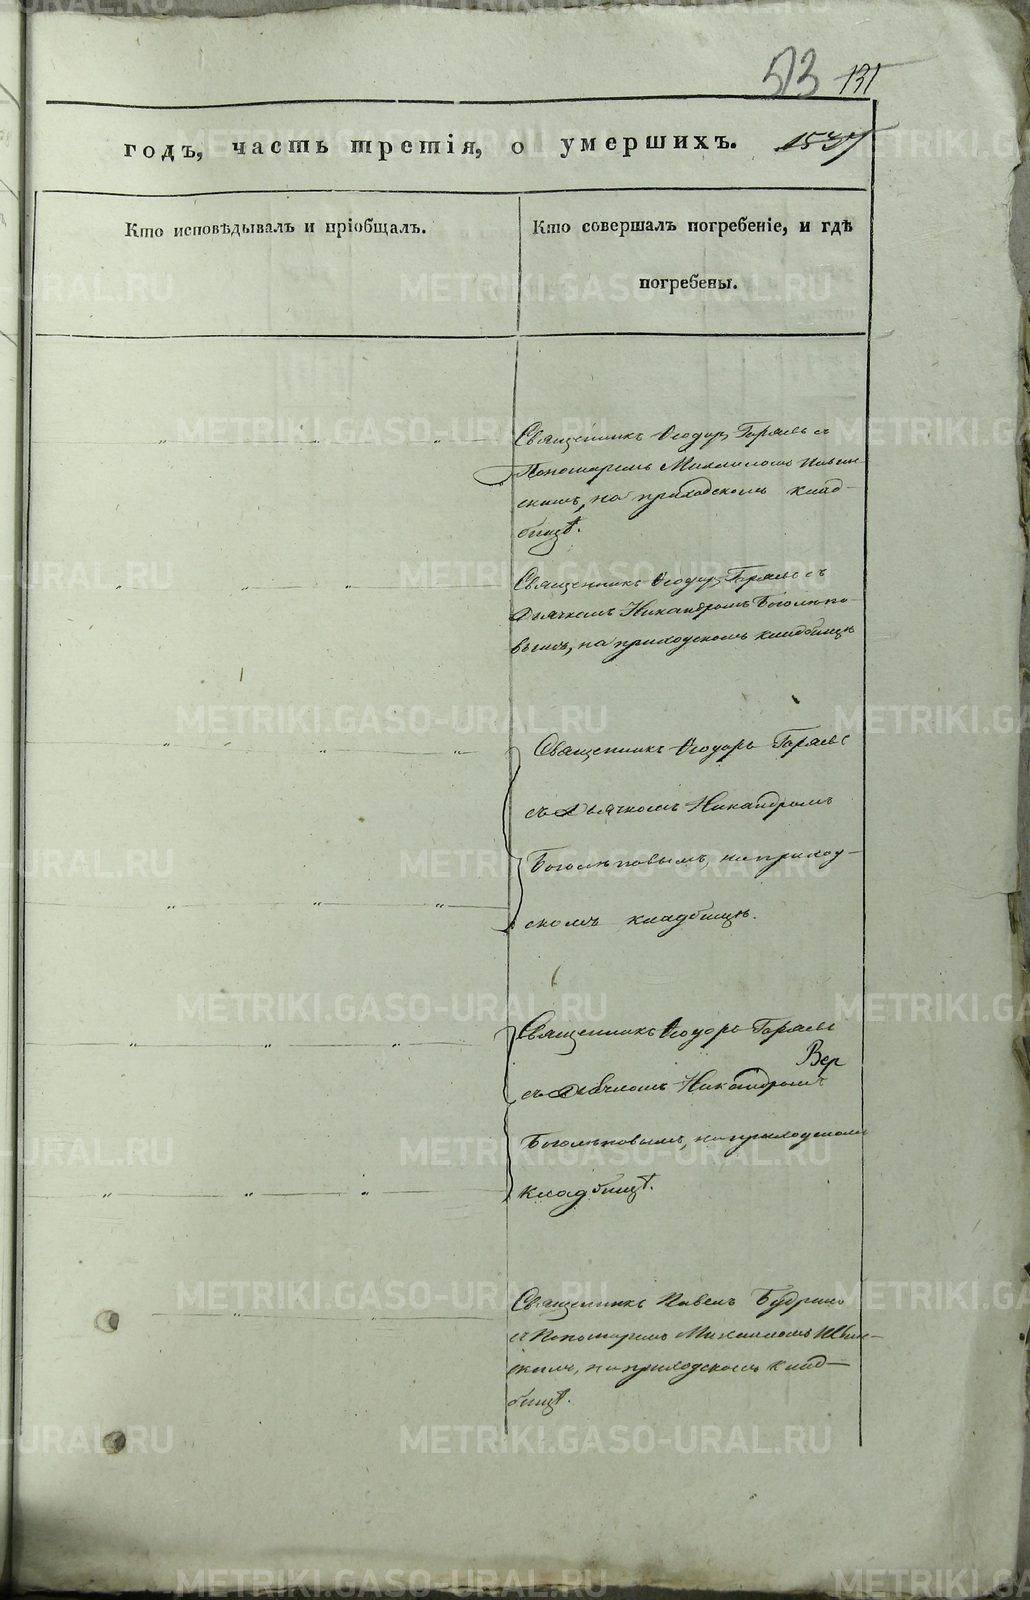 513 131
годъ, часть третія, о умершихъ. 1537
Кто исповѣдывалъ и пріобщалъ.
Кто совершалъ погребеніе, и гдѣ
погребены.
Священникъ Ѳеодоръ Горяевъ с
Пономаремъ Михаиломъ
скимъ, на приходскомъ клад-
бищѣ.
Священникъ Ѳеодоръ Горяевъ съ
Дьячкомъ Никандромъ Боголѣпо-
вымъ, на приходскомъ кладбищѣ
Священникъ Ѳеодоръ Горяевъ
съ Дьячкомъ Никандромъ
Боголѣповымъ, на приход-
скомъ кладбищѣ.
Священникъ Ѳеодоръ Горяевъ
Вер
съ Дьячкомъ Никандромъ
Боголѣповымъ, на приходскомъ
кладбищѣ.
Священникъ Павелъ
с Пономаремъ Михаиломъ
скимъ, на приходскомъ клад-
бищѣ.
METRIKI.GASO-URAL.RU